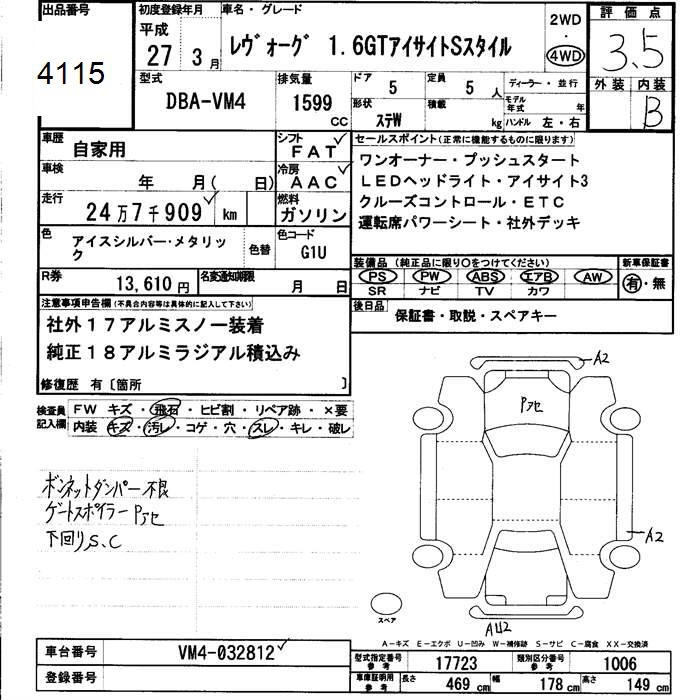 出品番号
4115
初度登録年月
平成
27 3 月
車名・グレード
レヴォーグ 1.6GTアイサイトSスタイル
2WD
・
4WD
評価点
3.5
外装 内装
B
型式
DBA-VM4
排気量
1599
CC
ドア
5
定員
5 人
形状
ステW
積載
kg
ディーラー・並行
モデル年式 年
ハンドル 左・右
車歴
自家用
シフト
FAT
車検
年 月( 日)
冷房
AAC
走行
24万7千909 km
燃料
ガソリン
色
アイスシルバー・メタリック
色替
色コード
G1U
R券
13,610円
名変通知期限
月 日
セールスポイント(正常に機能するものに限ります)
ワンオーナー・プッシュスタート
LEDヘッドライト・アイサイト3
クルーズコントロール・ETC
運転席パワーシート・社外デッキ
装備品(純正品に限り○をつけてください)
PS PW ABS エアB AW
SR ナビ TV カワ
新車保証書
有・無
後日品
保証書・取説・スペアキー
注意事項申告欄(不具合内容等は具体的に記入して下さい)
社外17アルミスノー装着
純正18アルミラジアル積込み
修復歴 有〔箇所 〕
検査員記入欄
FW キズ・飛石・ヒビ割・リペア跡・×要
内装 キズ・汚レ・コゲ・穴・スレ・キレ・破レ
ボンネットダンパー不良
ゲートスポイラーPアセ
下回りS.C
A2
Pアセ
A2
AU2
スペア
A-キズ E-エクボ U-凹み W-補修跡 S-サビ C-腐食 XX-交換済
車台番号
VM4-032812
登録番号
型式指定番号参考
17723
類別区分番号参考
1006
車庫証明用参考
長さ
469 cm
幅
178 cm
高さ
149 cm